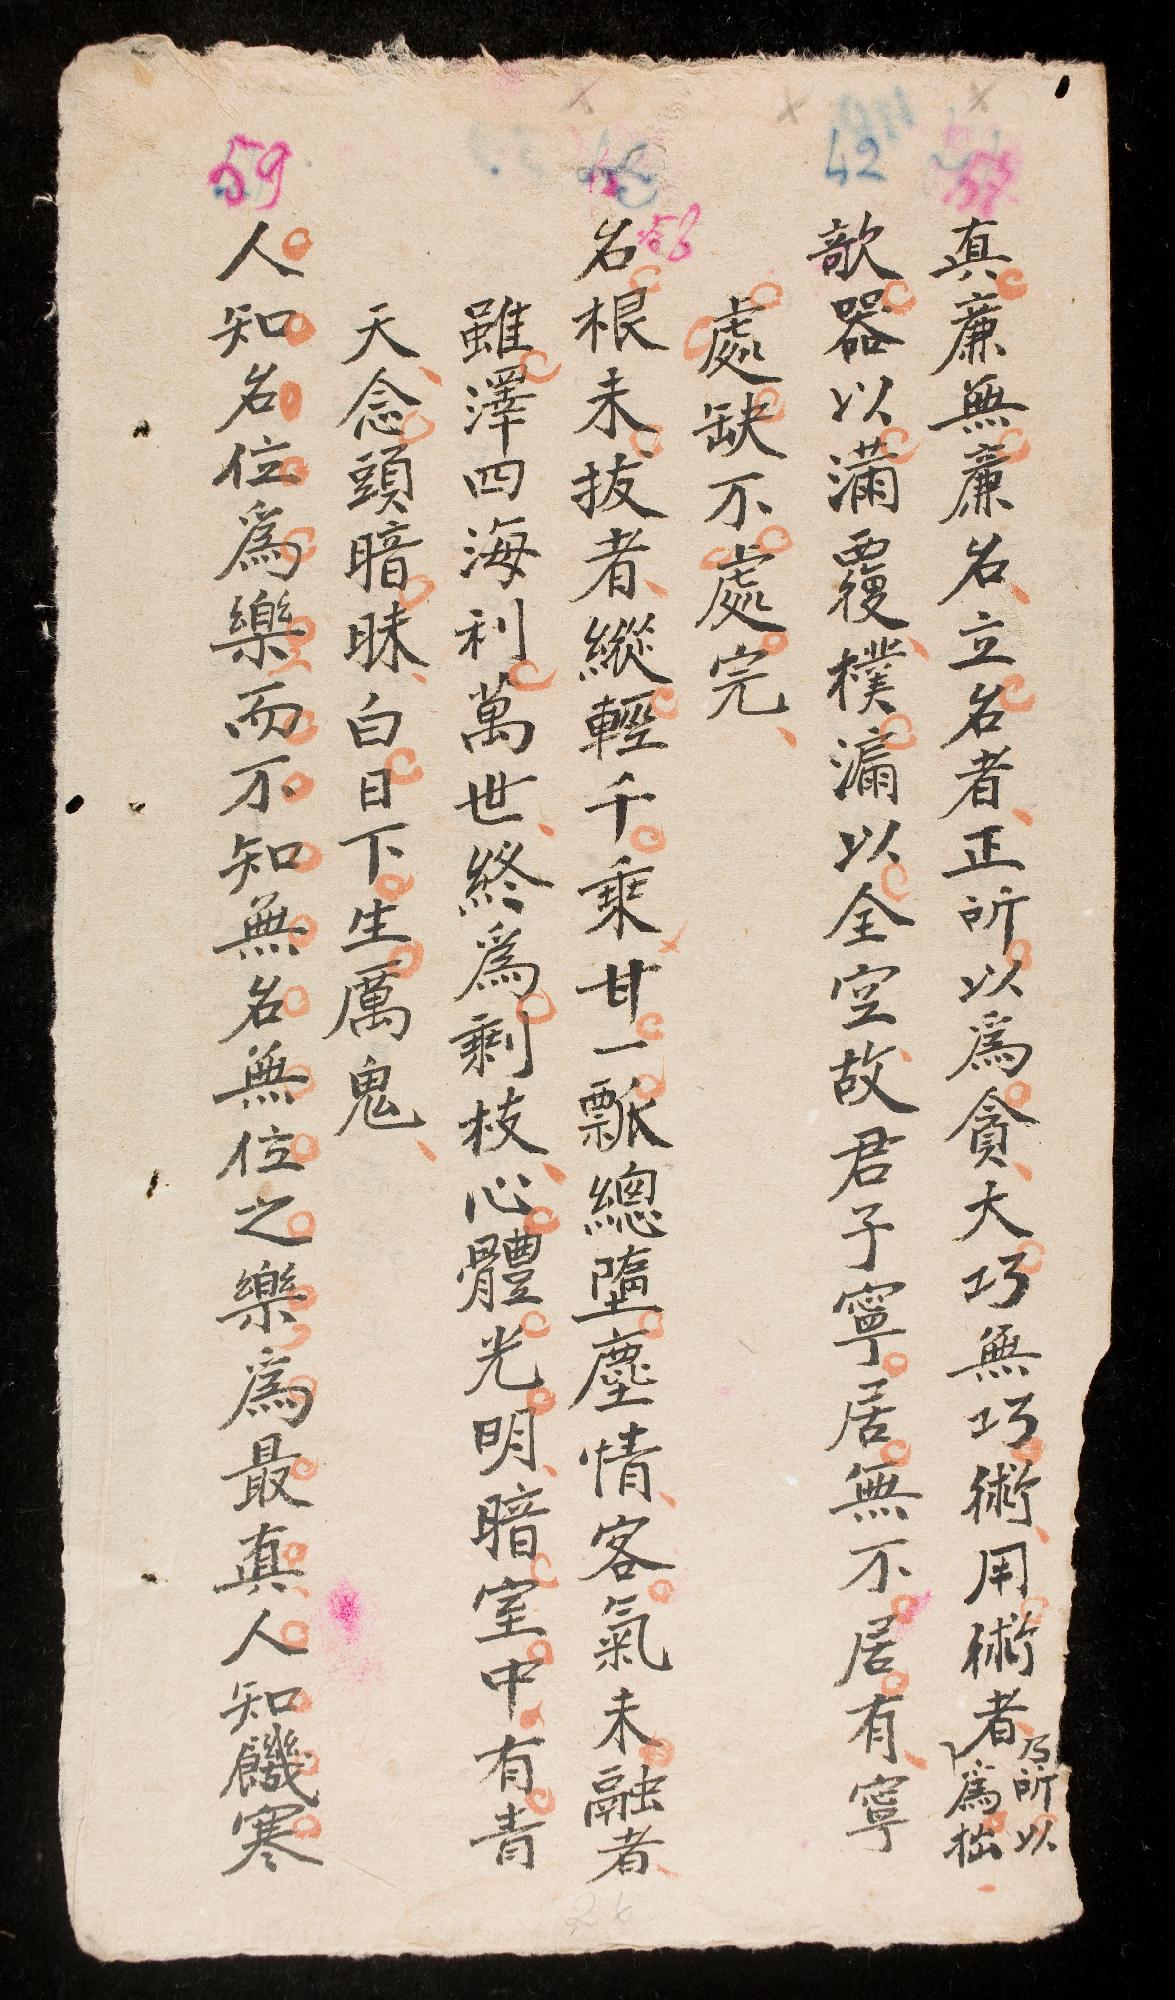 真廉無廉名立名者正所以爲貪大巧無巧術用術者乃所以爲拙
42
歌器以滿覆樸滿以全空故君子寧居無不居有寧
處缺不處完
56
名根未拔者縱輕千乘甘一瓢總墮塵情客氣未融者
雖澤四海利萬世終爲剩枝心體光明暗室中有青
天念頭暗昧白日下生厲鬼
59
人知名位爲樂而不知無名無位之樂爲最真人知饑寒
26